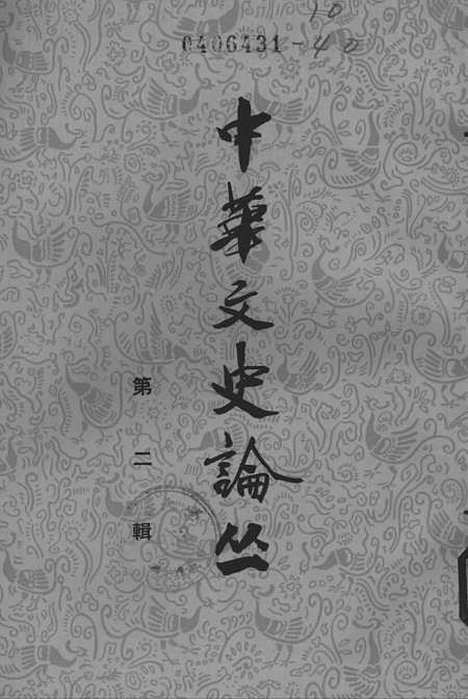 10
0406431-40
中華文史論丛
第二輯